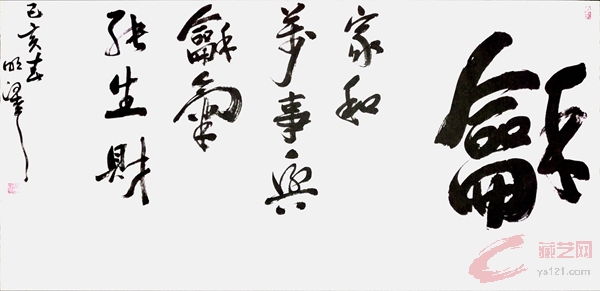 龢
家和
萬事興
龢氣
能生財
己亥春
明澤
藏艺网
ys121.com